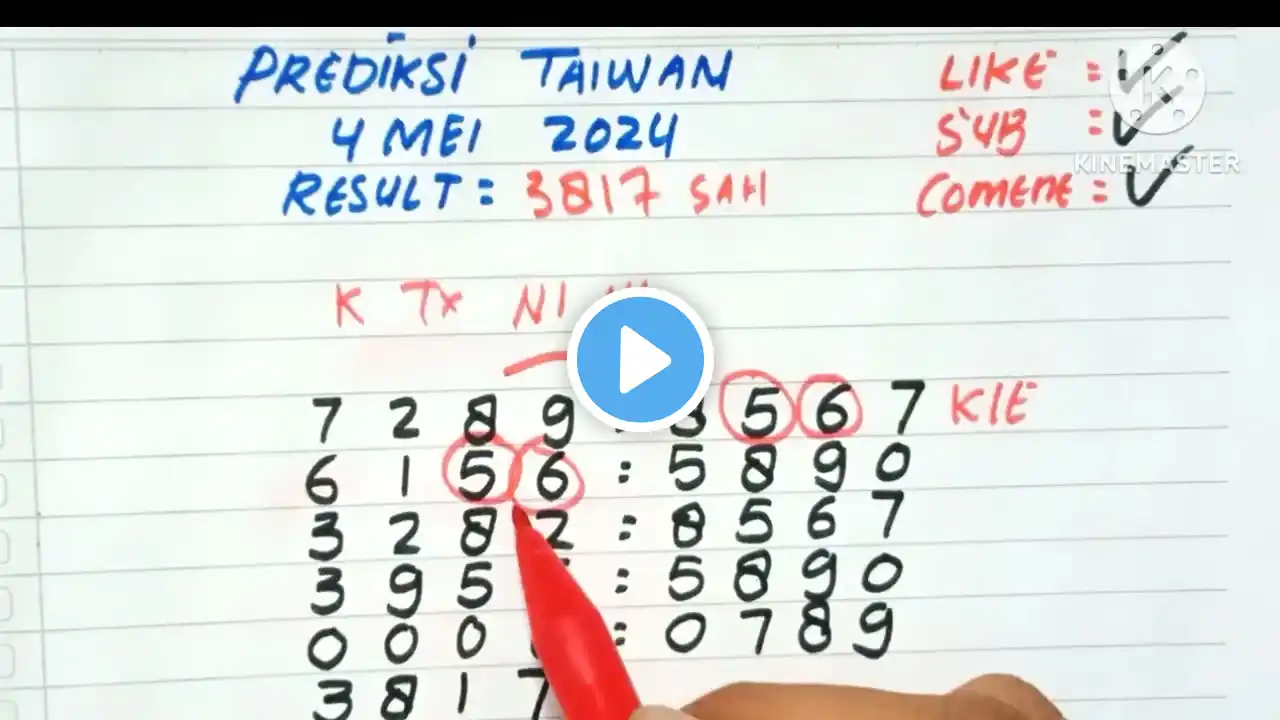 PREDIKSI TAIWAN
4 MEI 2024
RESULT = 3817 SAH
LIKE =
SUB =
COMENE =
KINEMASTER
K Tx NI
7 2 8 9 : 8 5 6 7 KIE
6 1 5 6 : 5 8 9 0
3 2 8 2 : 8 5 6 7
3 9 5 : 5 8 9 0
0 0 0 : 0 7 8 9
3 8 1 7